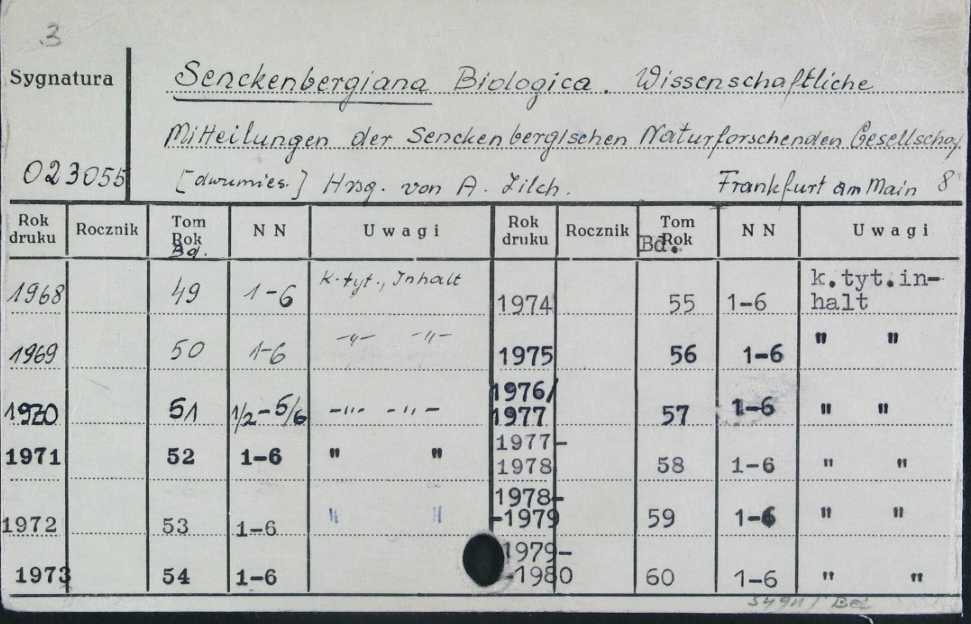 3
Sygnatura
023055
Senckenbergiana Biologica. Wissenschaftliche
Mitteilungen der Senckenbergischen Naturforschenden Gesellschaf
[dwumies.] Hrsg. von A. Zilch. Frankfurt am Main 8°
Rok druku Rocznik Tom Rok Bd. N N Uwagi Rok druku Rocznik Tom Rok Bd. N N Uwagi
1968 49 1-6 K. tyt., Inhalt 1974 55 1-6 k.tyt.in-halt
1969 50 1-6 -"- -"- 1975 56 1-6 " "
1970 51 1/2-5/6 -"- -"- 1976/1977 57 1-6 " "
1971 52 1-6 " " 1977-1978 58 1-6 " "
1972 53 1-6 " " 1978--1979 59 1-6 " "
1973 54 1-6 1979--1980 60 1-6 " "